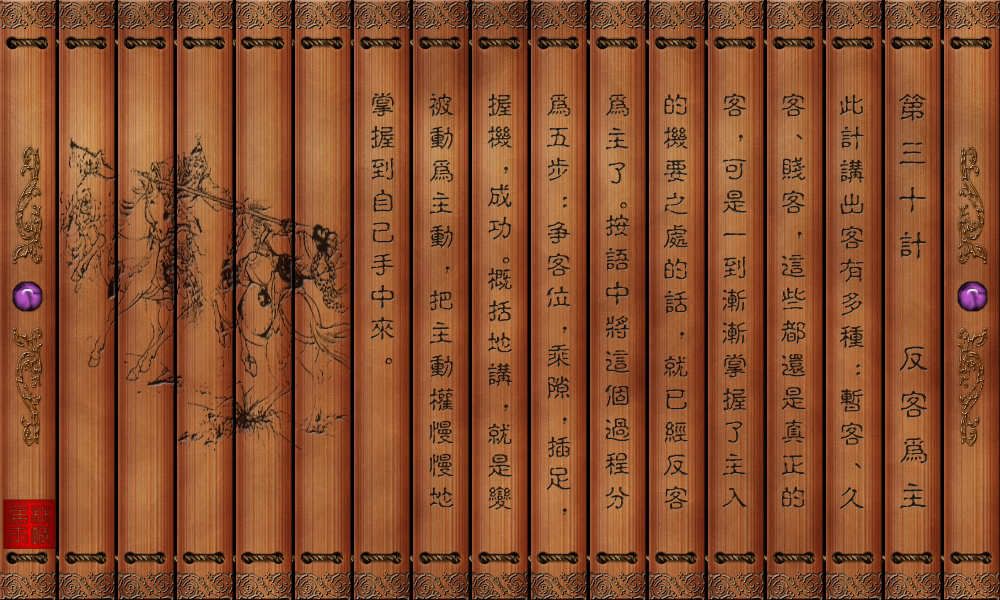 第三十計 反客爲主
此計講出客有多種：暫客、久
客、賤客，這些都還是真正的
客，可是一到漸漸掌握了主人
的機要之處的話，就已經反客
爲主了。按語中將這個過程分
爲五步：争客位，乘隙，插足，
握機，成功。概括地講，就是變
被動爲主動，把主動權慢慢地
掌握到自己手中來。